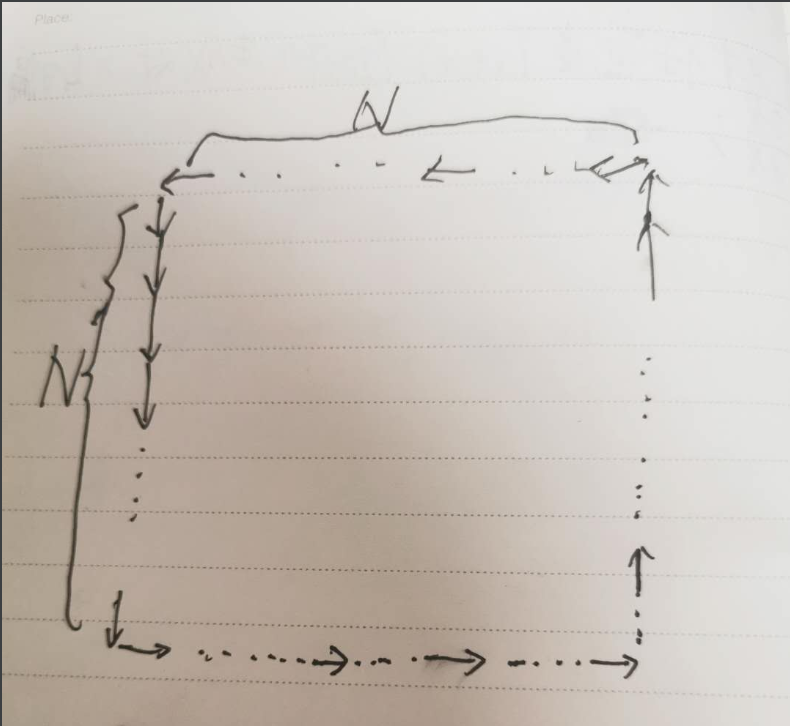 Place:
N
N